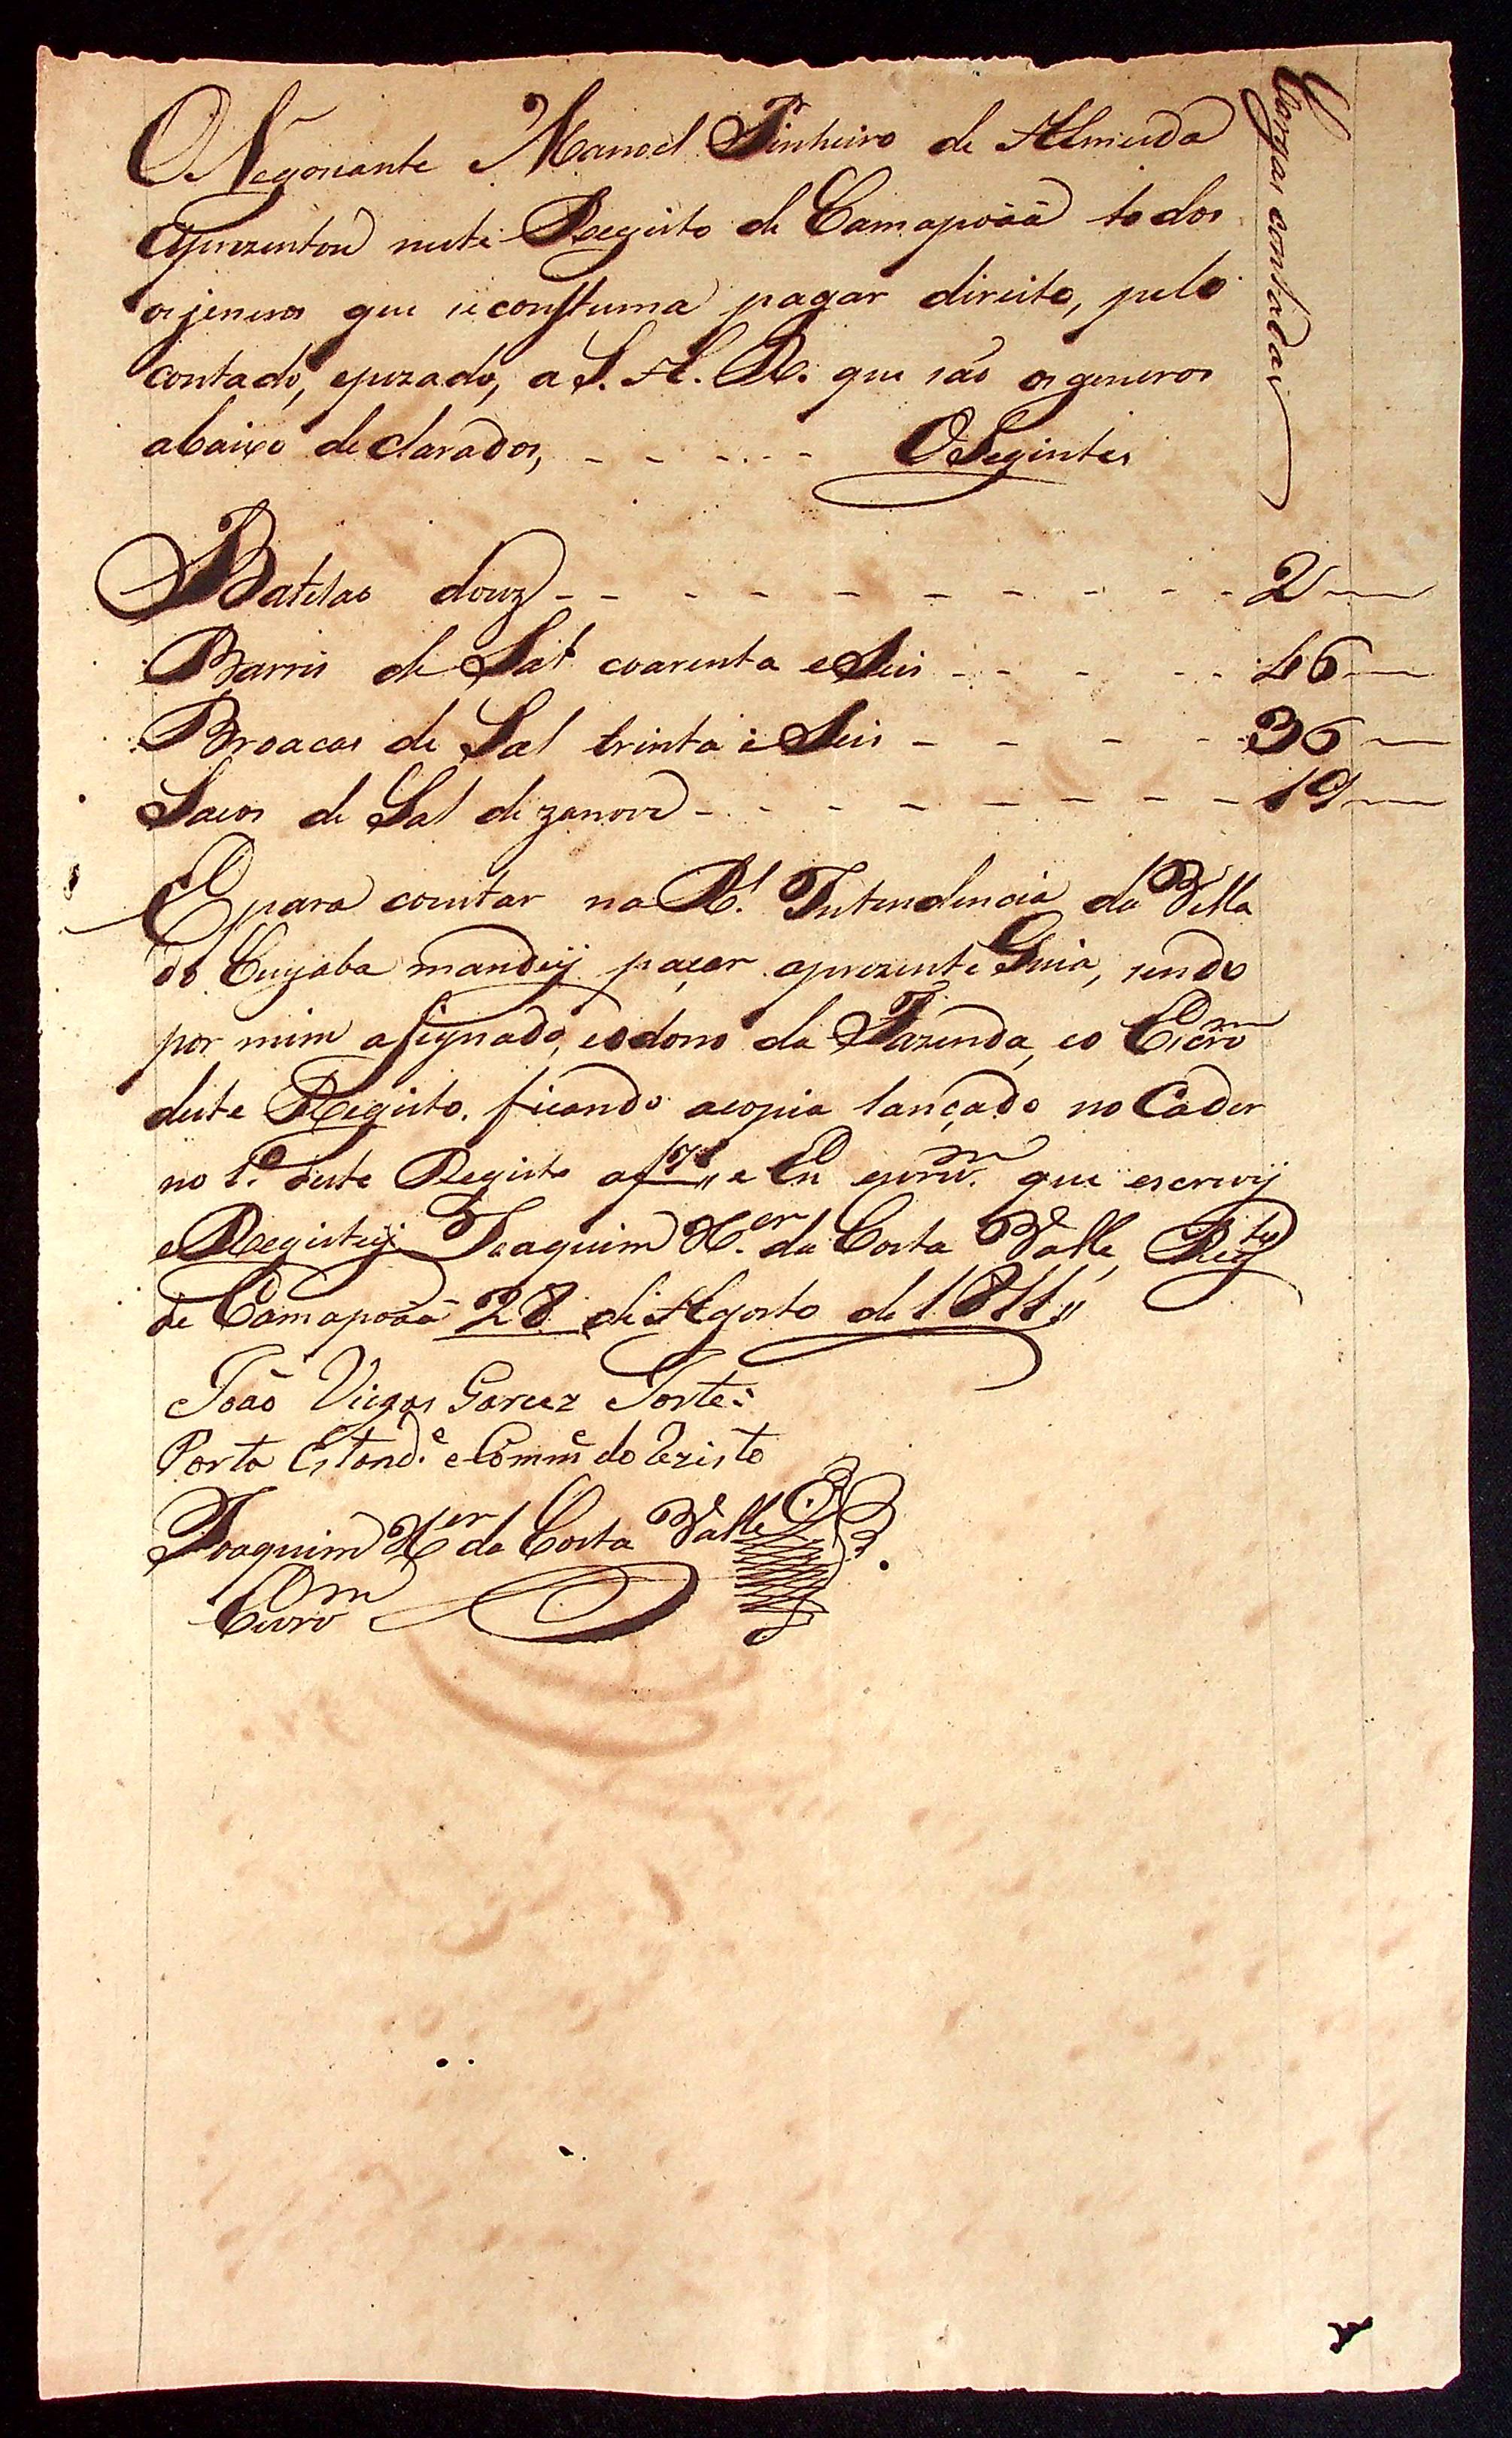 O Negoriante Manoel Pinheiro de Almeida
aprezentou neste Registo de Camapoãa todos
os jeneros que se constuma pagar direito, pelo
contado, epezado, a S. A. R. que são os generos
abaixo de clarados, - - - - - O Segintes
Cargas contadas
Batelao douz - - - - - - - - - - 2
Barris de Sal coarenta e Seis - - - - - 46
Broacas de Sal trinta e Seis - - - - 36
Sacos de Sal dizanove - - - - - - - - 19
E para constar na Rl. Intendencia da Villa
do Cuyaba mandeÿ paçar aprezente Guia, sendo
por mim asignado, eo dono da Fazenda, eo Escrm
deste Registo. ficando acopia lançado no Cader
no 1.º deste Registo af 7 e Eu escrm. que escrevÿ
e Registeÿ Joaquim X.er da Costa Valle, Regto
de Camapoãa 28 de Agosto de 1811
João Viegas Garcez Fortes
Porta Estand.e e Comme do Rezisto
Joaquim X.er da Costa Valle
Escrm